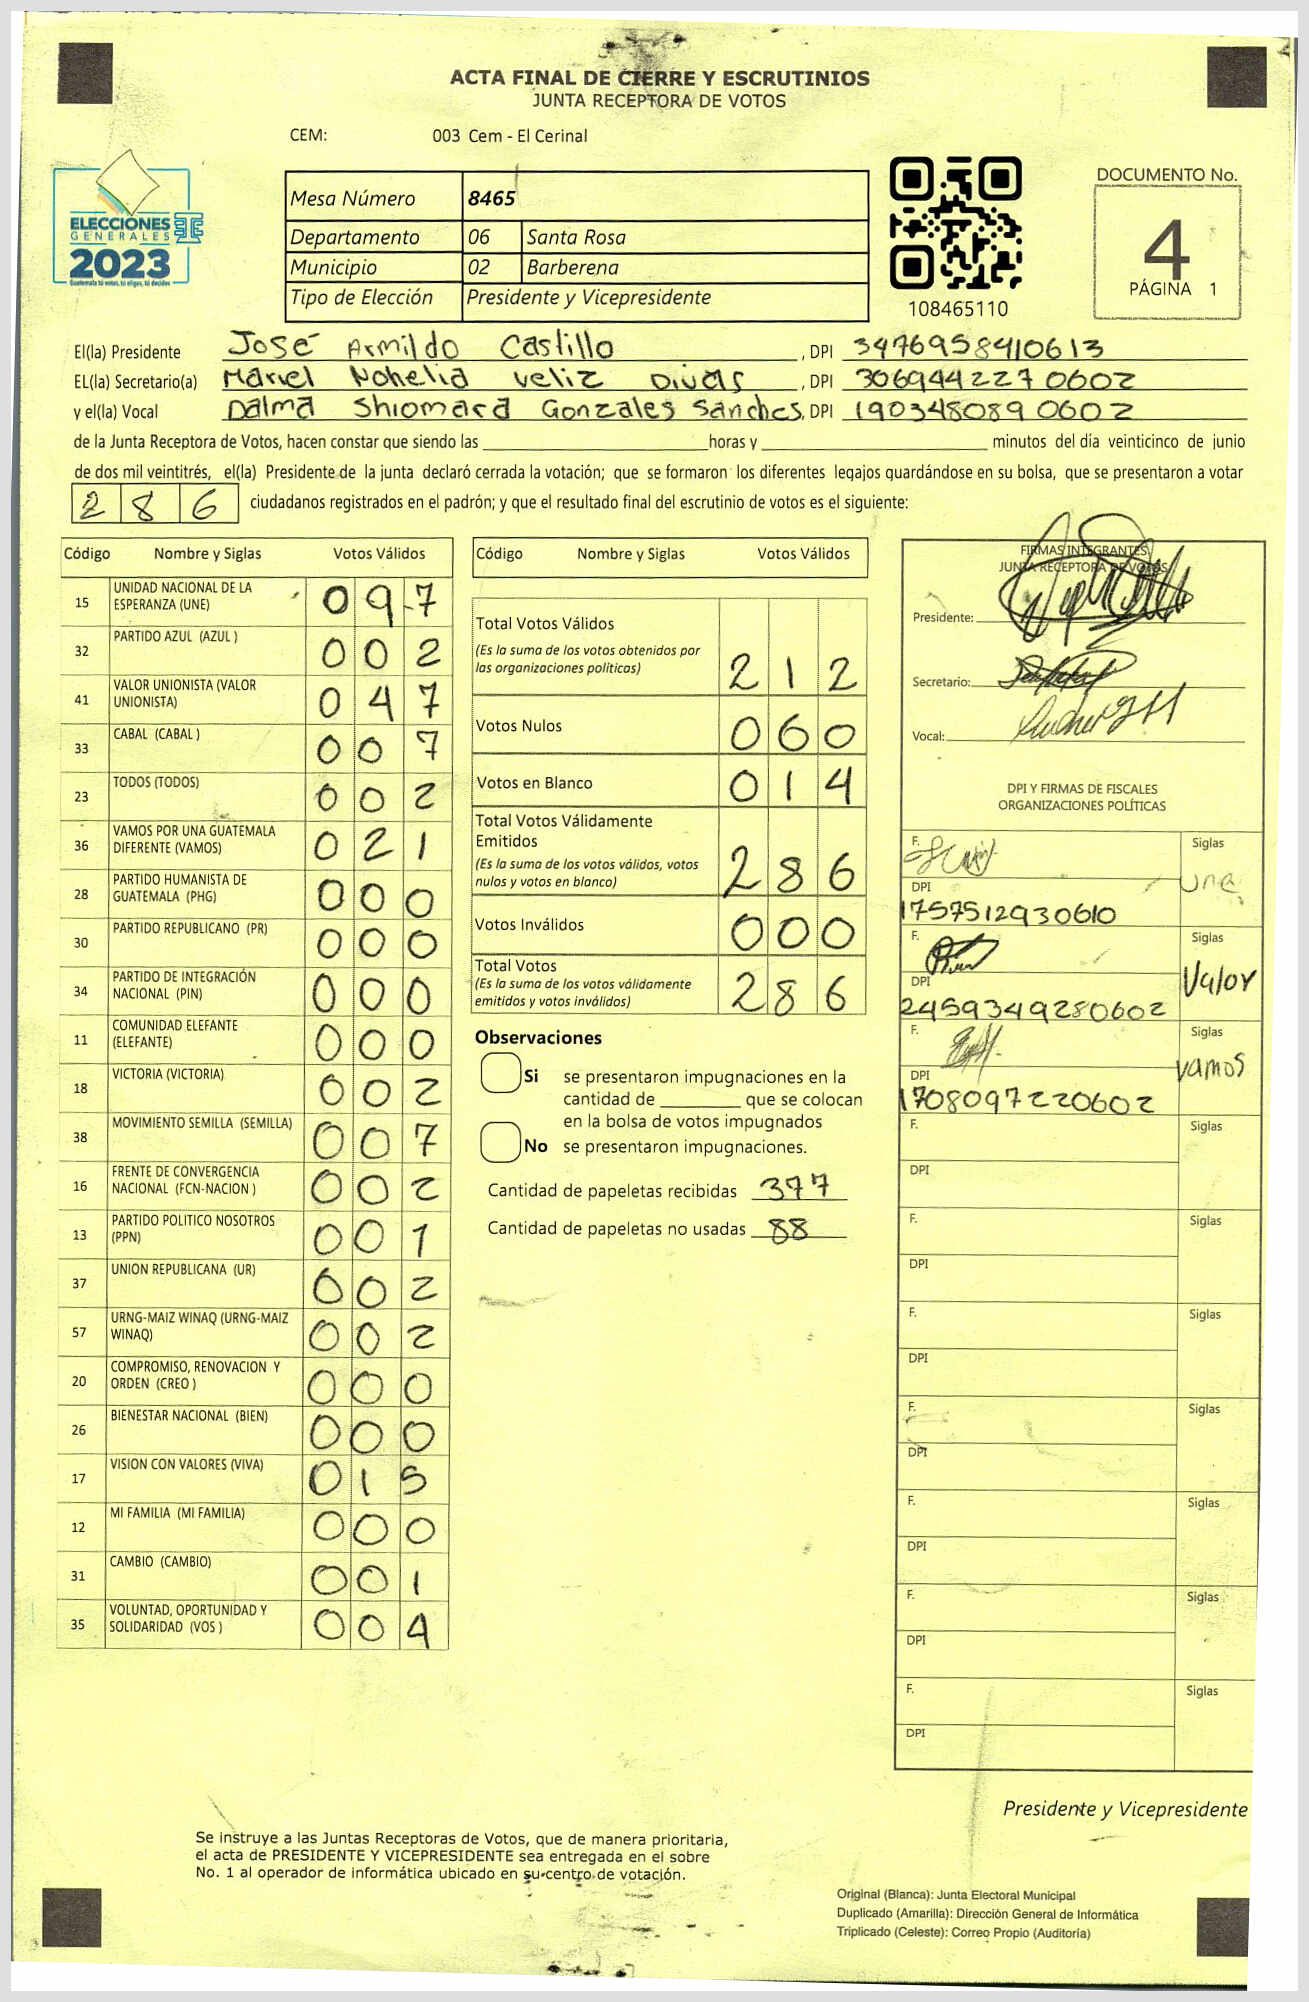 ACTA FINAL DE CIERRE Y ESCRUTINIOS
JUNTA RECEPTORA DE VOTOS
CEM: 003 Cem - El Cerinal
ELECCIONES
GENERALES
2023
Guatemala tú votas, tú eliges, tú decides
Mesa Número 8465
Departamento 06 Santa Rosa
Municipio 02 Barberena
Tipo de Elección Presidente y Vicepresidente
108465110
DOCUMENTO No.
4
PÁGINA 1
El(la) Presidente José Armildo Castillo, DPI 3476958410613
EL(la) Secretario(a) Mariel Nohelia Veliz Divas, DPI 3069442270602
y el(la) Vocal Dalma Shiomara Gonzales Sanches, DPI 1903480890602
de la Junta Receptora de Votos, hacen constar que siendo las horas y minutos del día veinticinco de junio
de dos mil veintitrés, el(la) Presidente de la junta declaró cerrada la votación; que se formaron los diferentes legajos quardándose en su bolsa, que se presentaron a votar
286 ciudadanos registrados en el padrón; y que el resultado final del escrutinio de votos es el siguiente:
Código Nombre y Siglas Votos Válidos
15 UNIDAD NACIONAL DE LA ESPERANZA (UNE) 097
32 PARTIDO AZUL (AZUL ) 002
41 VALOR UNIONISTA (VALOR UNIONISTA) 047
33 CABAL (CABAL ) 007
23 TODOS (TODOS) 002
36 VAMOS POR UNA GUATEMALA DIFERENTE (VAMOS) 021
28 PARTIDO HUMANISTA DE GUATEMALA (PHG) 000
30 PARTIDO REPUBLICANO (PR) 000
34 PARTIDO DE INTEGRACIÓN NACIONAL (PIN) 000
11 COMUNIDAD ELEFANTE (ELEFANTE) 000
18 VICTORIA (VICTORIA) 002
38 MOVIMIENTO SEMILLA (SEMILLA) 007
16 FRENTE DE CONVERGENCIA NACIONAL (FCN-NACION ) 002
13 PARTIDO POLITICO NOSOTROS (PPN) 001
37 UNION REPUBLICANA (UR) 002
57 URNG-MAIZ WINAQ (URNG-MAIZ WINAQ) 002
20 COMPROMISO, RENOVACION Y ORDEN (CREO ) 000
26 BIENESTAR NACIONAL (BIEN) 000
17 VISION CON VALORES (VIVA) 015
12 MI FAMILIA (MI FAMILIA) 000
31 CAMBIO (CAMBIO) 001
35 VOLUNTAD, OPORTUNIDAD Y SOLIDARIDAD (VOS ) 004
Código Nombre y Siglas Votos Válidos
Total Votos Válidos
(Es la suma de los votos obtenidos por
las organizaciones políticas) 212
Votos Nulos 060
Votos en Blanco 014
Total Votos Válidamente
Emitidos
(Es la suma de los votos válidos, votos
nulos y votos en blanco) 286
Votos Inválidos 000
Total Votos
(Es la suma de los votos válidamente
emitidos y votos inválidos) 286
Observaciones
Si se presentaron impugnaciones en la
cantidad de que se colocan
en la bolsa de votos impugnados
No se presentaron impugnaciones.
Cantidad de papeletas recibidas 377
Cantidad de papeletas no usadas 88
FIRMAS INTEGRANTES
JUNTA RECEPTORA DE VOTOS
Presidente:
Secretario:
Vocal:
DPI Y FIRMAS DE FISCALES
ORGANIZACIONES POLÍTICAS
F. Siglas
une
DPI
1757512930610
F. Siglas
Valor
DPI
2459349280602
F. Siglas
vamos
DPI
1708097220602
F. Siglas
DPI
F. Siglas
DPI
F. Siglas
DPI
F. Siglas
DPI
F. Siglas
DPI
F. Siglas
DPI
F. Siglas
DPI
Presidente y Vicepresidente
Se instruye a las Juntas Receptoras de Votos, que de manera prioritaria,
el acta de PRESIDENTE Y VICEPRESIDENTE sea entregada en el sobre
No. 1 al operador de informática ubicado en su centro de votación.
Original (Blanca): Junta Electoral Municipal
Duplicado (Amarilla): Dirección General de Informática
Triplicado (Celeste): Correo Propio (Auditoría)